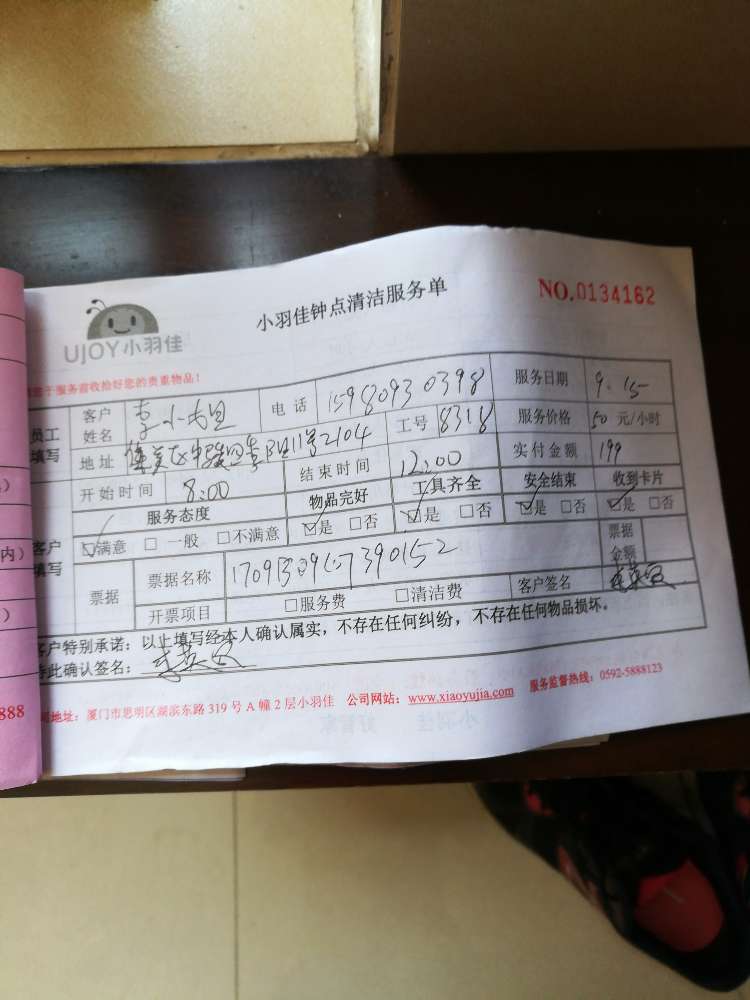 小羽佳钟点清洁服务单
NO.0134162
UJOY小羽佳
于服务前收拾好您的贵重物品！
员工填写 客户姓名 李小 电话 15980930398 服务日期 9.15
地址 11号2104 工号 8318 服务价格 50 元/小时
开始时间 8:00 结束时间 12:00 实付金额 199
客户填写 服务态度 物品完好 工具齐全 安全结束 收到卡片
☑满意 □一般 □不满意 ☑是 □否 ☑是 □否 ☑是 □否 ☑是 □否
票据 票据名称 票据金额
开票项目 □服务费 □清洁费 客户签名
客户特别承诺：以上填写经本人确认属实，不存在任何纠纷，不存在任何物品损坏。
特此确认签名：
司地址：厦门市思明区湖滨东路319号A幢2层小羽佳 公司网站：www.xiaoyujia.com 服务监督热线：0592-5888123
内）
）
888